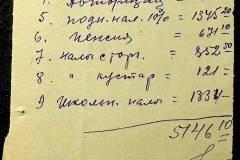 5. подн. нал. 10% = 1345 20
6. Пенсия = 671 10
7. налы сторг. = 352 50
8. " кустар = 121 =
9 школьн. налы = 1334 -
5146 10